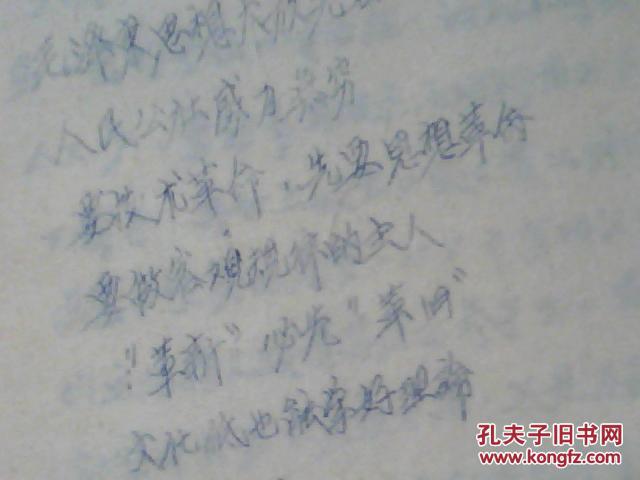 毛泽东思想大放光
人民公社威力无穷
要技术革命,先要思想革命
要做客观规律的主人
“革新”必先“革旧”
文化低也能学好理论
孔夫子旧书网
www.kongfz.com